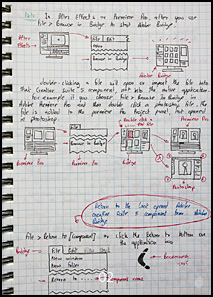 Note: In After Effects or Premiere Pro, after you use
File > Browse in Bridge to start Adobe Bridge:
After
Effects
File Edit
New
Browse
Adobe Bridge
double-clicking a file will open or import the file into
that Creative Suite 5 component, not into the native application.
For example, if you choose File > Browse In Bridge in
Adobe Premiere Pro and then double click a photoshop file, the
file is added to the Premiere Pro Project panel, not opened
in photoshop.
Double-click
File
Premiere Pro
Premiere Pro
Premiere Pro
Bridge
Photoshop
Return to the last opened Adobe
creative suite 5 component from Adobe
Bridge
File > Return to [Component] or click the Return to button on
the application bar
Bridge
File Edit View
New window
New folder
Return to
Component name
Boomerang
icon